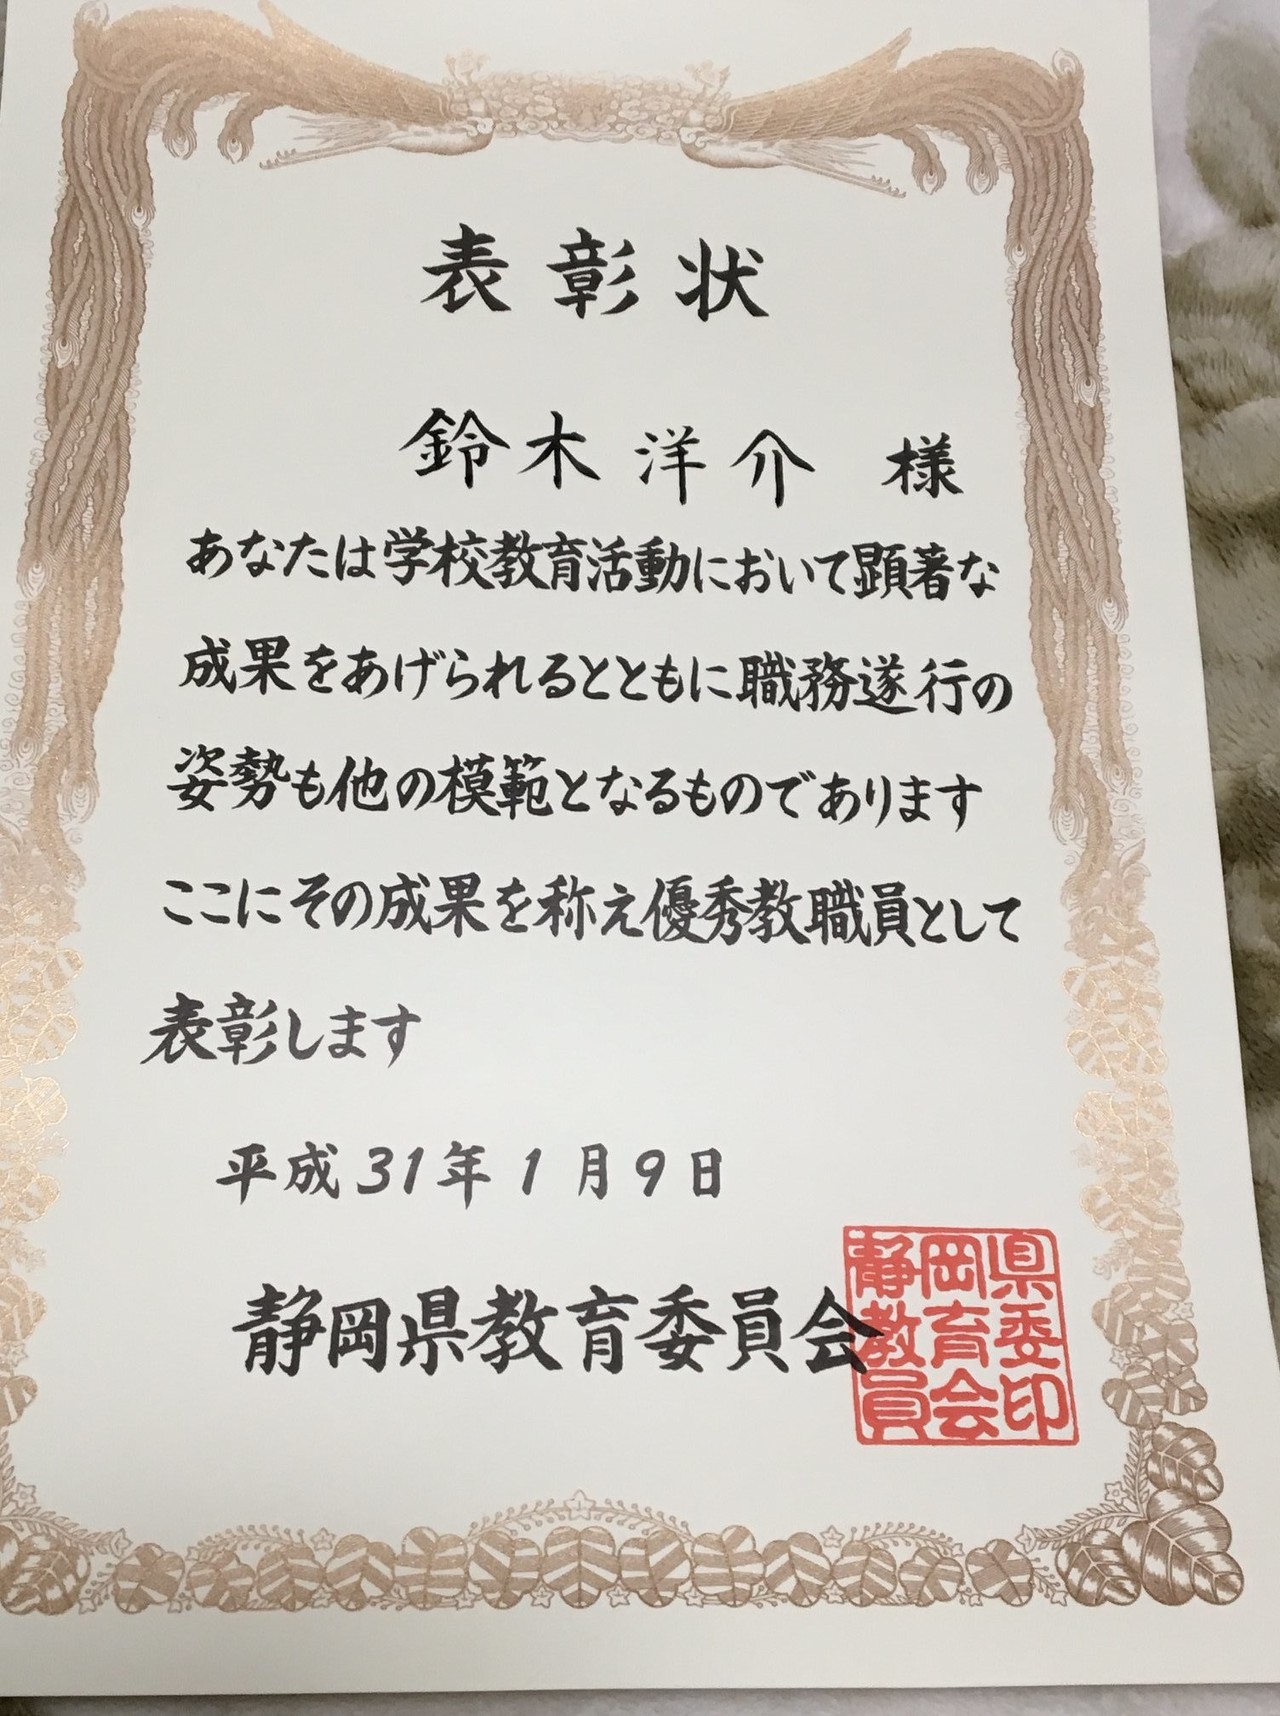 表彰状
鈴木洋介 様
あなたは学校教育活動において顕著な
成果をあげられるとともに職務遂行の
姿勢も他の模範となるものであります
ここにその成果を称え優秀教職員として
表彰します
平成31年1月9日
静岡県教育委員会
静岡県
教育委
員会印